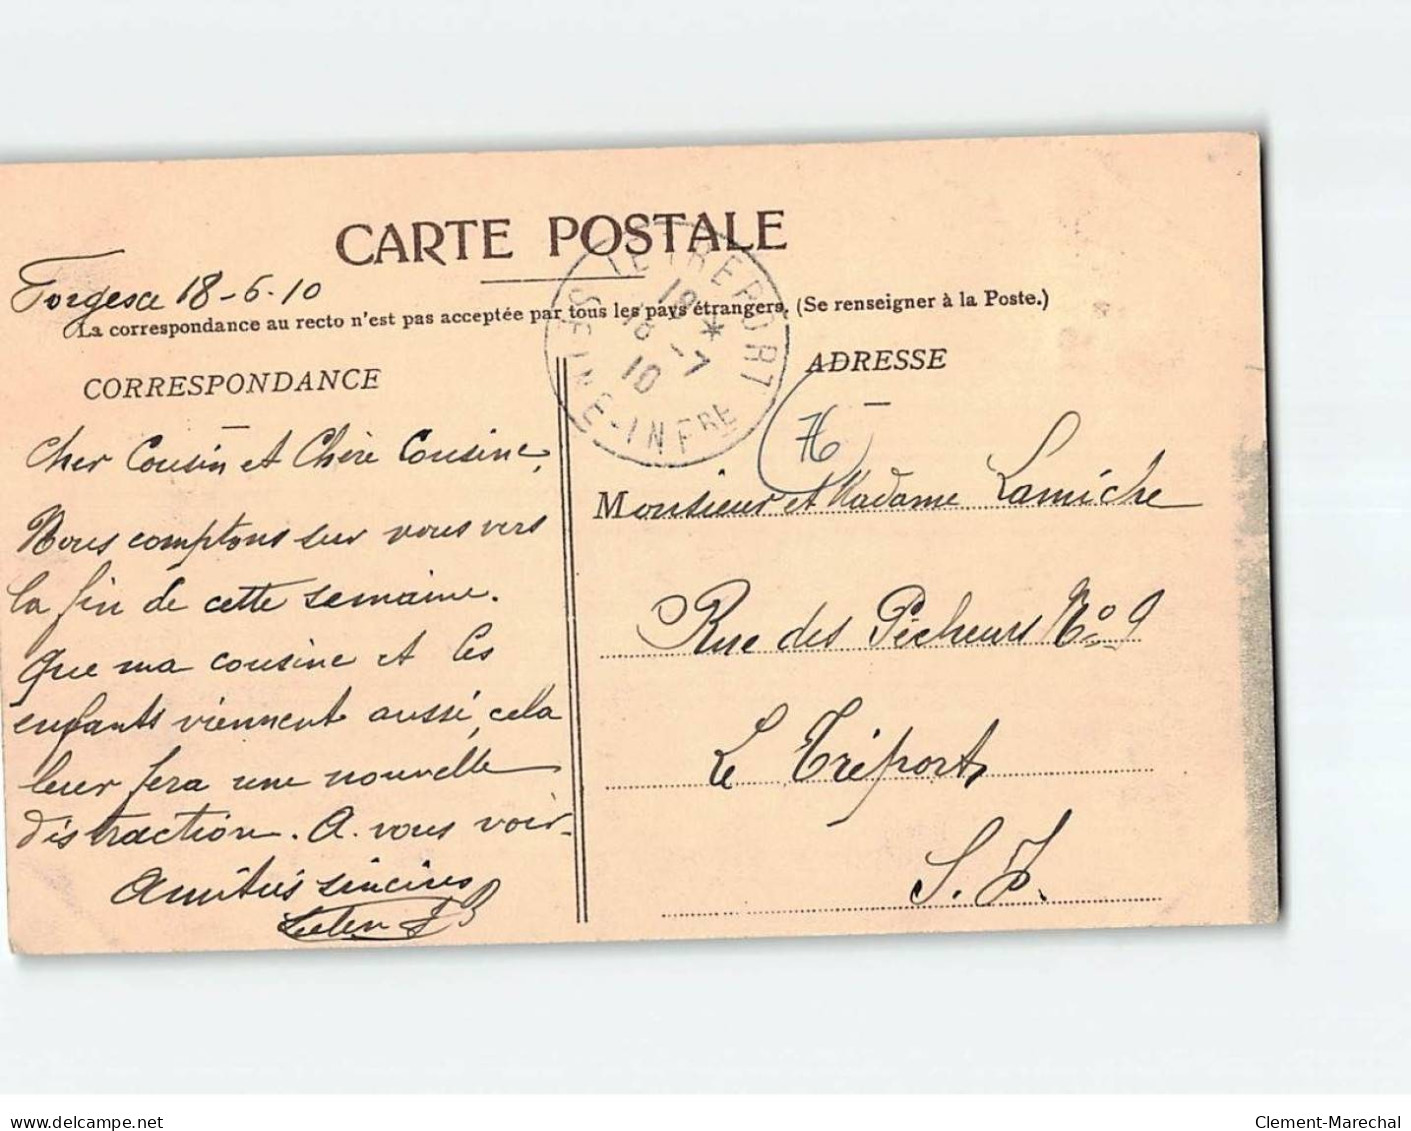 CARTE POSTALE
18-6-10
La correspondance au recto n'est pas acceptée par tous les pays étrangers. (Se renseigner à la Poste.)
LE TREPORT
SEINE-INFRE
18 *
18 - 7
10
CORRESPONDANCE
Cher Cousin et Chère Cousine,
Nous comptons sur vous vers
la fin de cette semaine.
Que ma cousine et les
enfants viennent aussi, cela
leur fera une nouvelle
distraction. A vous voir.
Amitiés sincères
ADRESSE
76
Monsieur et Madame Lamiche
Rue des Pêcheurs No 9
Le Tréport
S. I.
delcampe.net
Clement-Marechal